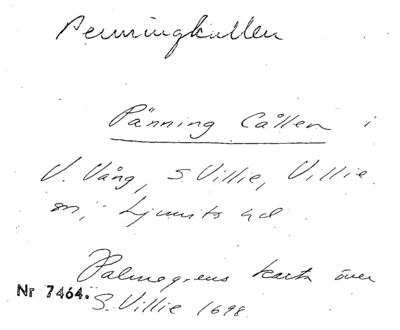 Penningkullen
Pänning Cållen i
V. Vång, S. Villie, Villie
sn, Ljunits hd
Palmgrens karta över
Nr 7464. S. Villie 1698.